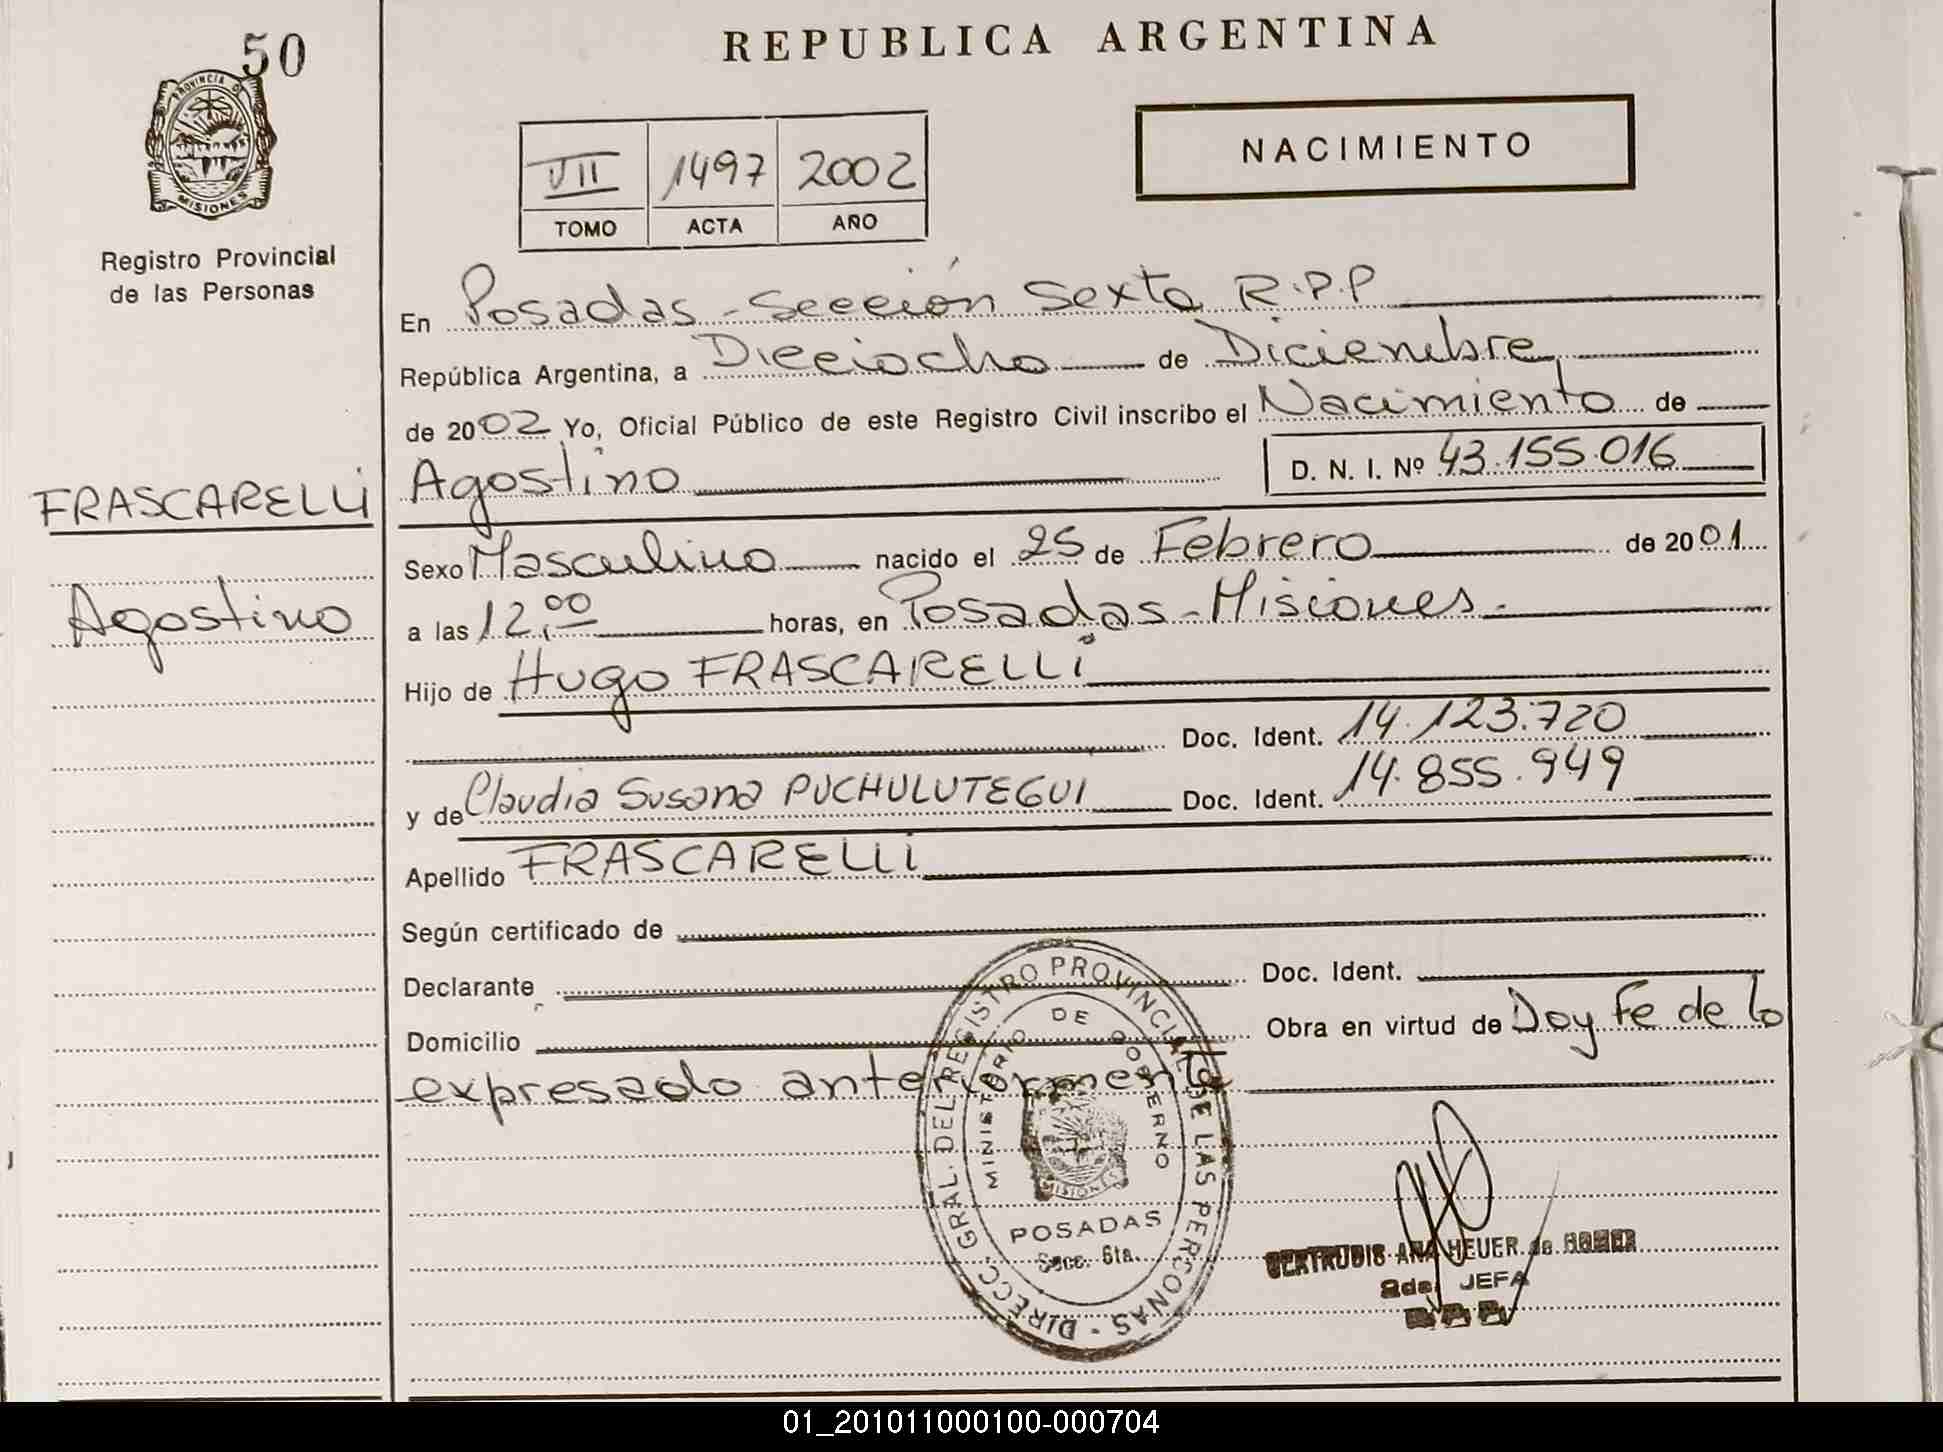 50
REPUBLICA ARGENTINA
PROVINCIA DE
MISIONES
Registro Provincial
de las Personas
VII 1497 2002
TOMO ACTA AÑO
NACIMIENTO
En Posadas - Sección Sexta R.P.P
República Argentina, a Dieciocho de Diciembre
de 2002 Yo, Oficial Público de este Registro Civil inscribo el Nacimiento de
FRASCARELLi
Agostino D. N. I. Nº 43.155.016
Sexo Masculino nacido el 25 de Febrero de 2001
Agostino
a las 12,00 horas, en Posadas - Misiones -
Hijo de Hugo FRASCARELLi
Doc. Ident. 14.123.720
y de Claudia Susana PUCHULUTEGUI Doc. Ident. 14.855.949
Apellido FRASCARELLi
Según certificado de
Declarante Doc. Ident.
Domicilio Obra en virtud de Doy Fe de lo
expresado anteriormente
DIRECC. GRAL. DEL REGISTRO PROVINCIAL DE LAS PERSONAS -
MINISTERIO DE GOBIERNO
MISIONES
POSADAS
Secc. 6ta.
GERTRUDIS ANA HEUER de
2da. JEFA
01_201011000100-000704